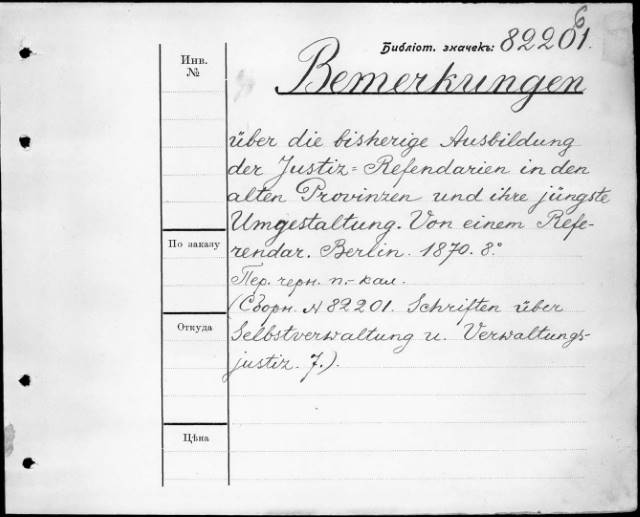 6
Библіот. значекъ: 82201.
Инв. №
Bemerkungen
über die bisherige Ausbildung
der Justiz=Refendarien in den
alten Provinzen und ihre jüngste
Umgestaltung. Von einem Refe-
По заказу
rendar. Berlin. 1870. 8.°
Пер. черн. п.-кал.
(Сборн. № 82201. Schriften über
Откуда
Selbstverwaltung u. Verwaltungs-
justiz. 7.).
Цѣна